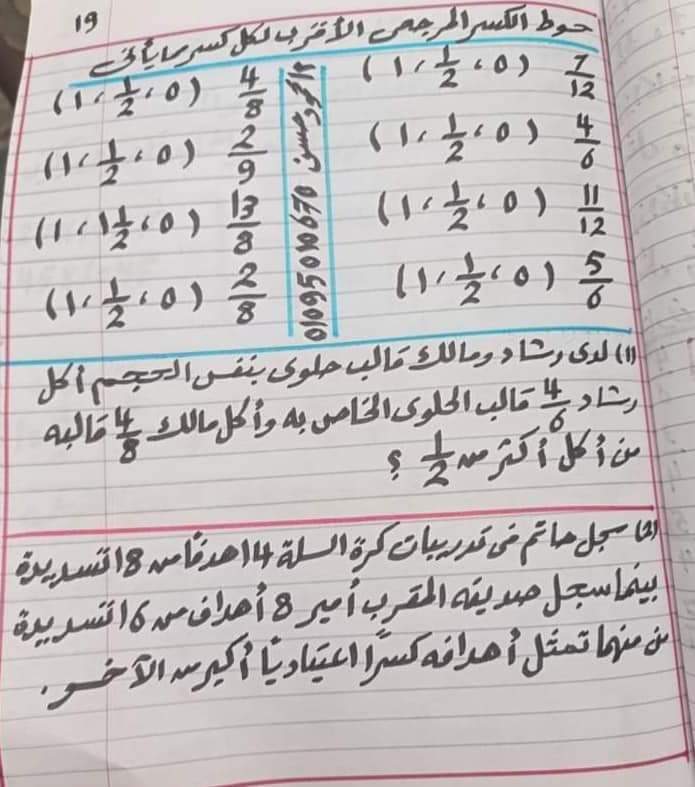 19
حوط الكسر المرجعى الأقرب لكل كسر مما يأتى
7/12 (0، 1/2، 1)
4/6 (0، 1/2، 1)
11/12 (0، 1/2، 1)
5/6 (0، 1/2، 1)
حسن 01095010670
4/8 (0، 1/2، 1)
2/9 (0، 1/2، 1)
13/8 (0، 1 1/2، 1)
2/8 (0، 1/2، 1)
(1) لدى رشاد ومالك قالب حلوى بنفس الحجم أكل
رشاد 4/6 قالب الحلوى الخاص به وأكل مالك 4/8 قالبه
من أكل أكثر من 1/2 ؟
(2) سجل حاتم فى تدريبات كرة السلة 14 هدفًا من 18 تسديدة
بينما سجل صديقه المقرب أمير 8 أهداف من 16 تسديدة
من منهما تمثل أهدافه كسرًا اعتياديًا أكبر من الآخر.